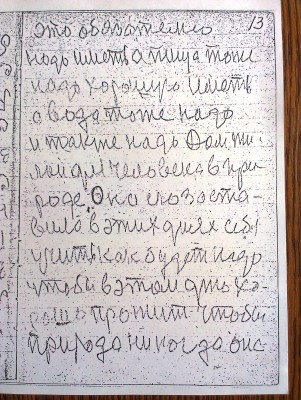 13
это обязательно
надо иметь а пища тоже
надо хорошую иметь
а вода тоже надо
и также надо Дом жи
лой для человека в при
роде. Она его заста-
вила в этих днях себя
учить как будет надо
чтобы в этом дню хо-
рошо прожить чтобы
природа никогда